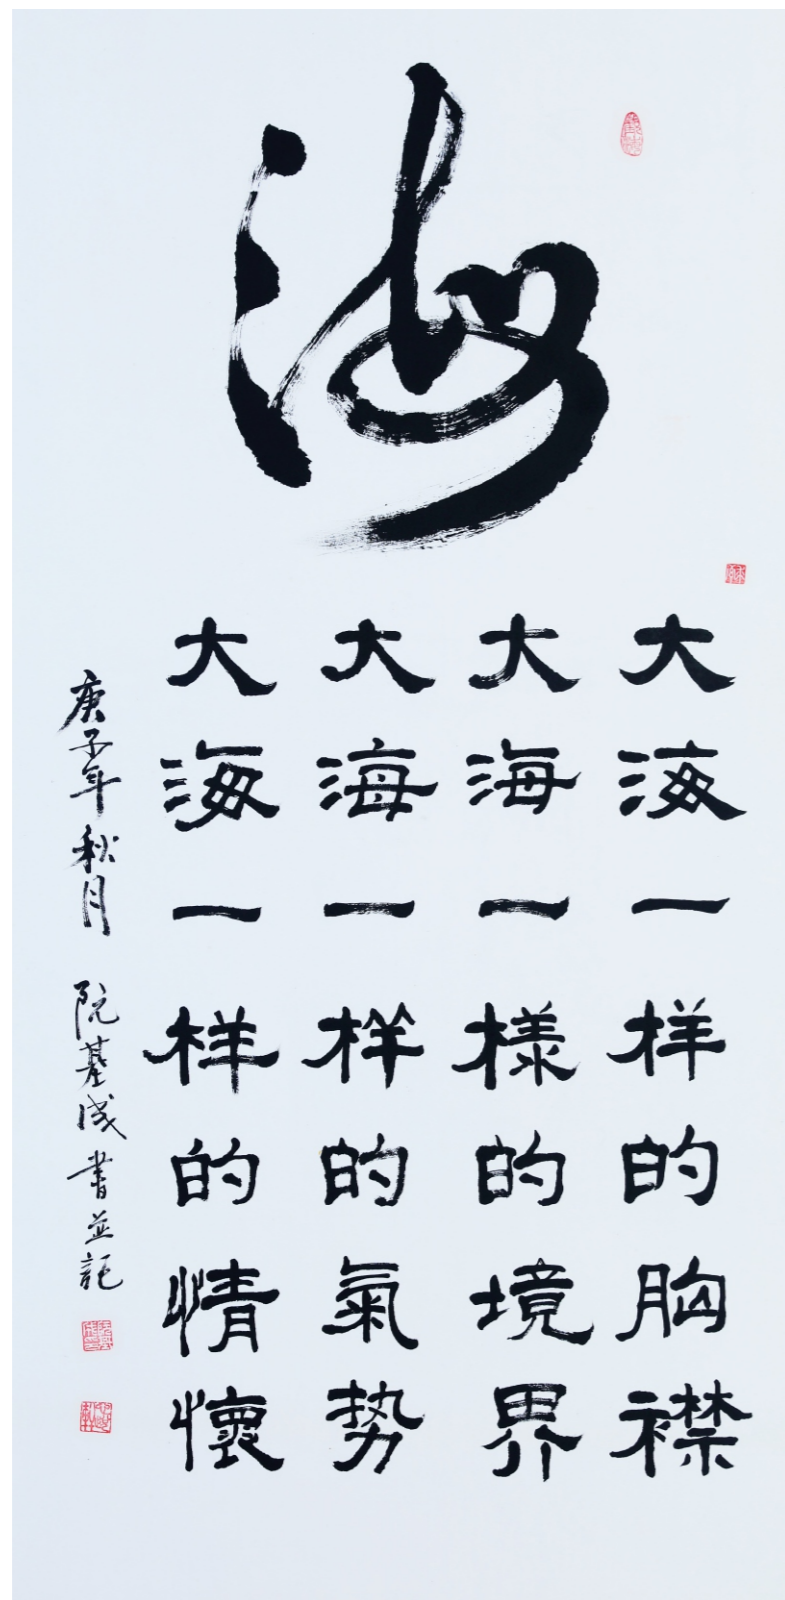 海
大海一样的胸襟
大海一樣的境界
大海一样的氣势
大海一样的情懷
庚子年秋月 阮基成書並記